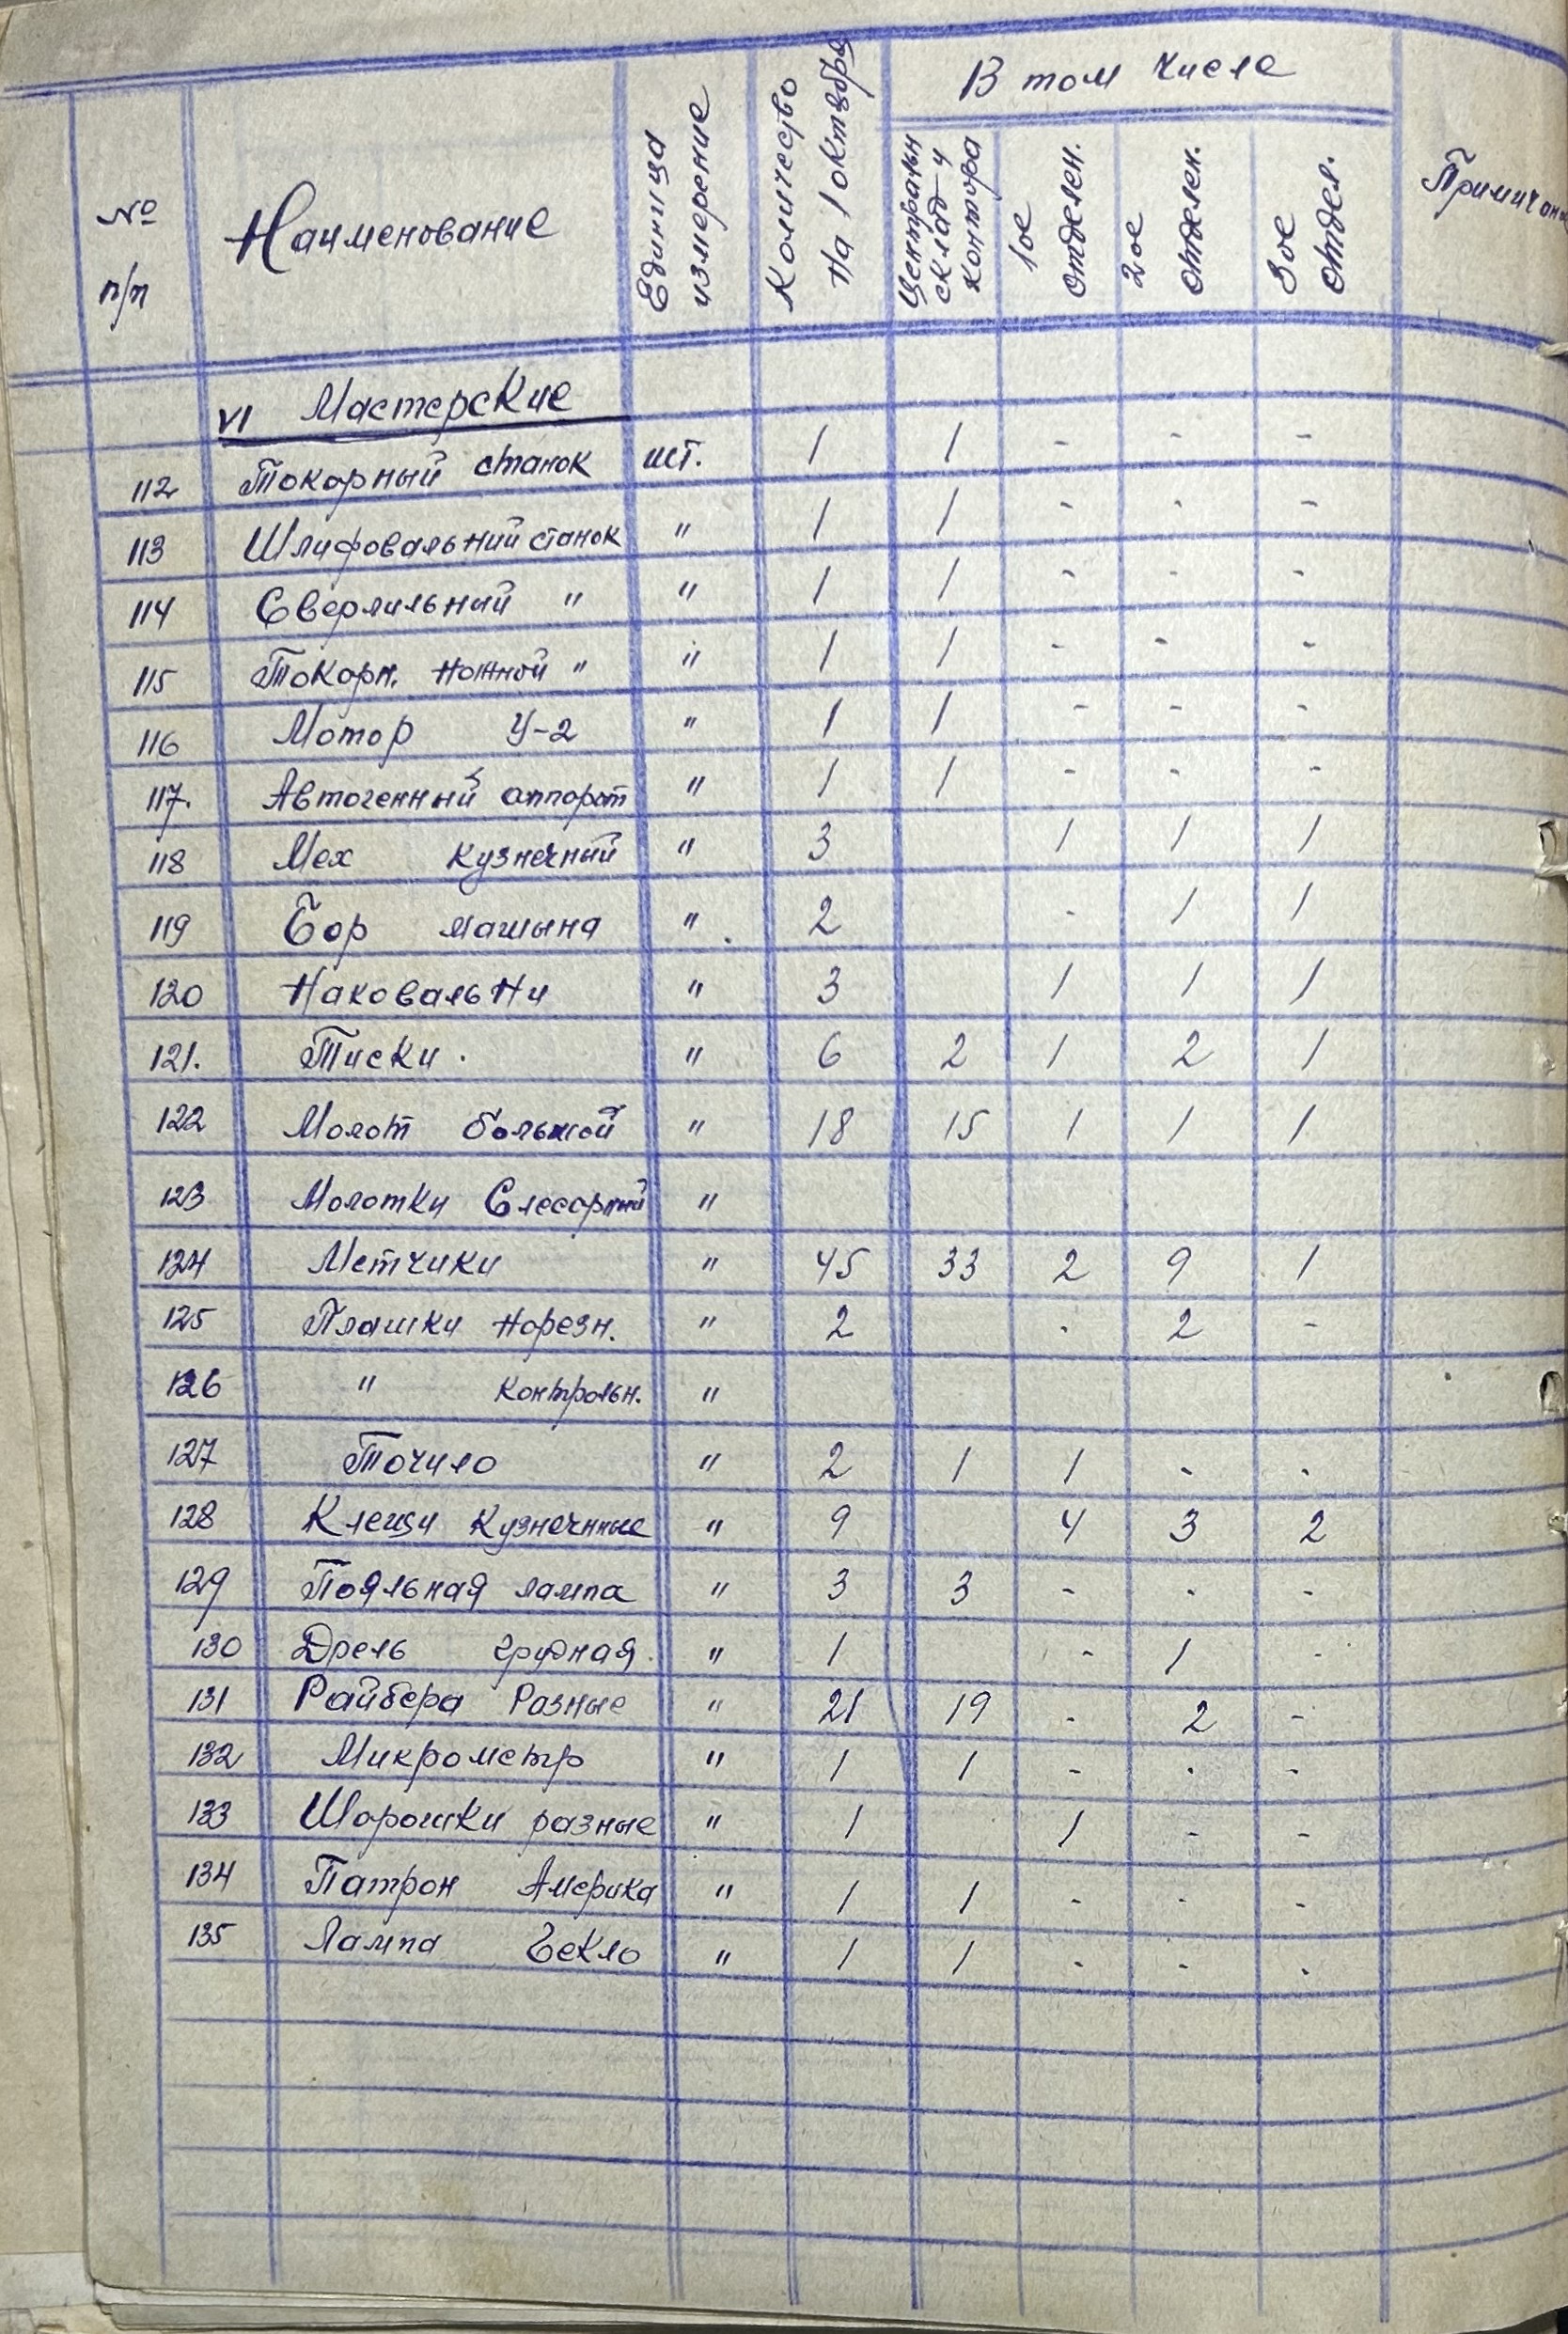 № п/п Наименование Единица измерение Количество на 1 октября В том числе Центральн склад и контора 1ое отделен. 2ое отделен. 3ое отдел. Примичани
VI Мастерские
112 Токарный станок шт. 1 1 - - -
113 Шлифовальний станок " 1 1 - - -
114 Сверлильный " " 1 1 - - -
115 Токарн. ножной " " 1 1 - - -
116 Мотор У-2 " 1 1 - - -
117. Автогенный аппарат " 1 1 - - -
118 Мех кузнечный " 3 1 1 1
119 Бор машына " 2 - 1 1
120 Наковальни " 3 1 1 1
121. Тиски " 6 2 1 2 1
122 Молот большой " 18 15 1 1 1
123 Молотки Слесарный "
124 Метчики " 45 33 2 9 1
125 Плашки нарезн. " 2 - 2 -
126 " контрольн. "
127 Точило " 2 1 1 - -
128 Клещи кузнечнные " 9 4 3 2
129 Пояльная лампа " 3 3 - - -
130 Дрель грудная " 1 - 1 -
131 Райбера Разные " 21 19 - 2 -
132 Микрометр " 1 1 - - -
133 Шарошки разные " 1 1 - -
134 Патрон Америка " 1 1 - - -
135 Лампа " 1 1 - - -